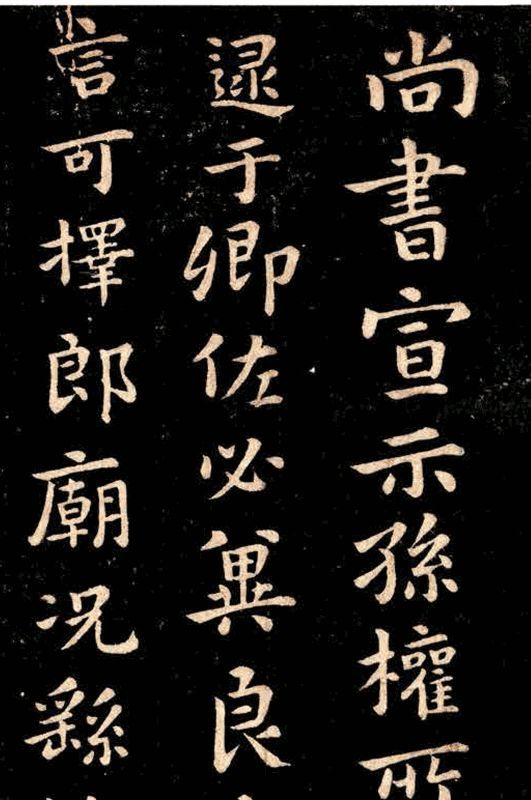 尚書宣示孫權所
逮于卿佐必冀良
言可擇郎廟况繇